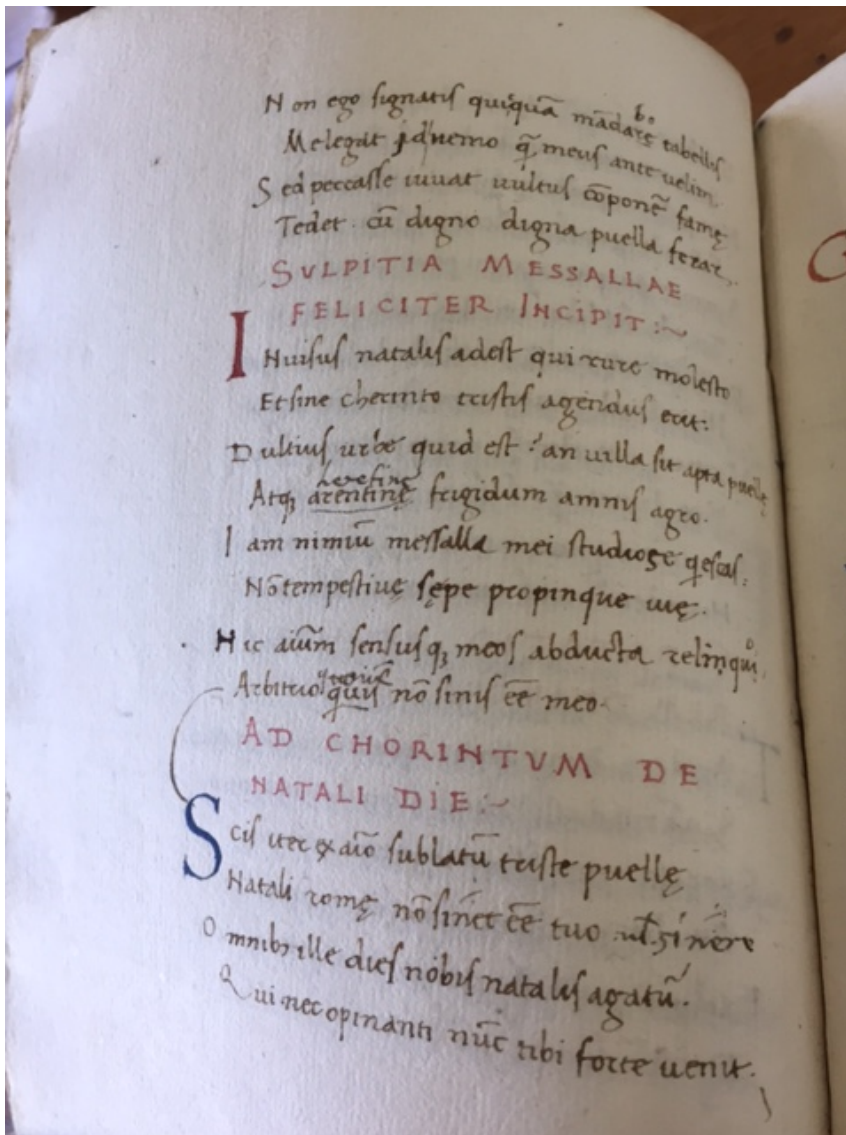 Non ego signatis quiquã mãdarẽ tabellis
bo
Me legat id nemo q̃ meus ante velim
Sed peccasse iuvat uultus cõponẽ famę
Tedet. cũ digno digna puella ferar
SVLPITIA MESSALLAE
FELICITER INCIPIT:~
INuisus natalis adest qui rure molesto
Et sine cherinto tristis agendus erit:
Dultius urbe quid est? an uilla sit apta puellę
Atq; arentinę frigidum amnis agro.
Iam nimiũ messalla mei studiose q̃escas:
Nõ tempestiuę sępe propinque uię.
Hic aiũm sensusq; meos abducta relinqui
o
Arbitrio quis nõ sinis eẽ meo.
AD CHORINTVM DE
NATALI DIE:~
Scis iter ex aĩo sublatũ triste puellę
Natali romę nõ sinet eẽ tuo .ul. sinere
Omnibȝ ille dies nobis natalis agatũ.
Qui nec opinanti nũc tibi forte uenit.